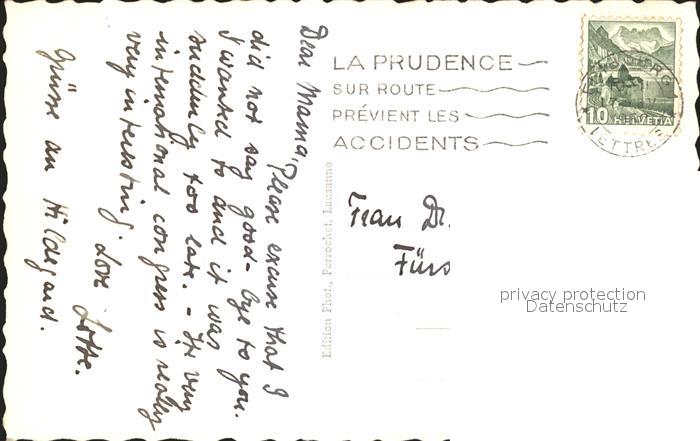 Dear Mama, Please excuse that I
did not say good-bye to you.
I wanted to and it was
suddenly too late. - The very
international congress is really
very interesting. Love Lotte.
Grüsse an Hildegard.
Edition Phot., Perrochet, Lausanne
LA PRUDENCE
SUR ROUTE
PRÉVIENT LES
ACCIDENTS
10 HELVETIA
LETTRES
Frau Dr.
Fürs
privacy protection
Datenschutz